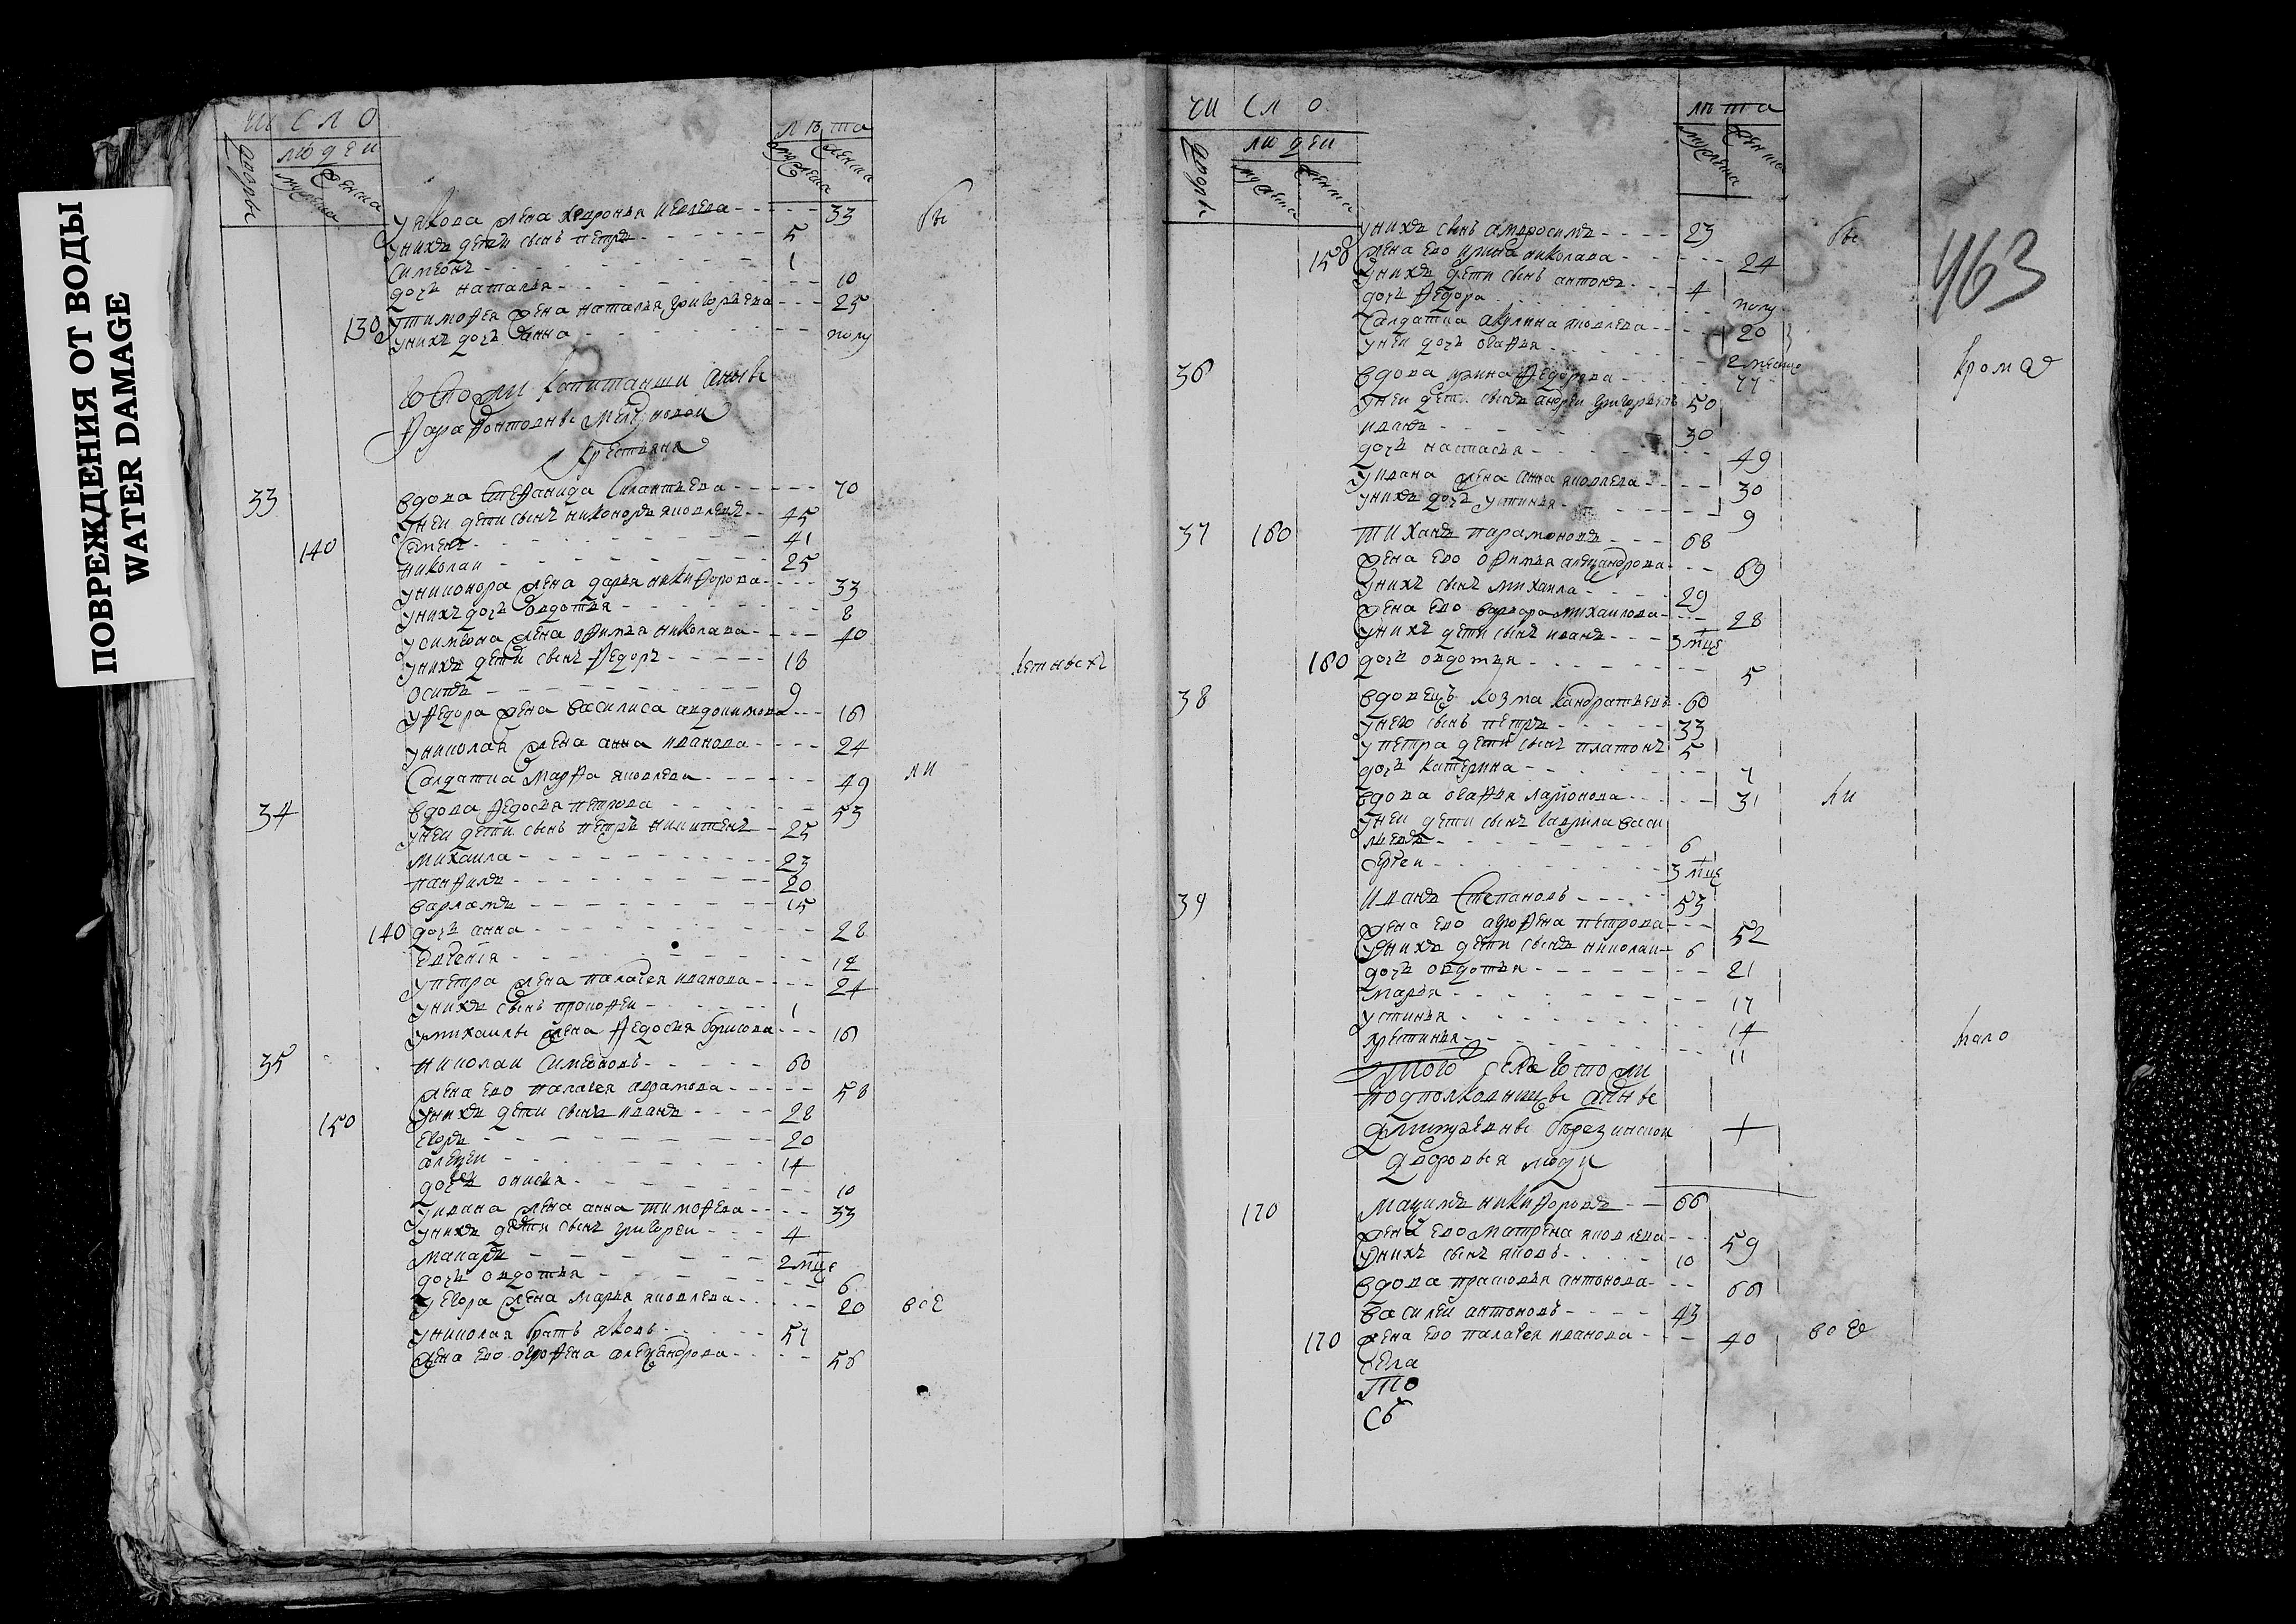 ПОВРЕЖДЕНИЯ ОТ ВОДЫ
WATER DAMAGE
число лѣта
людеи
дворы мужеска женска мужеска женска
у якова жена хавронья 33 бы
у нихъ дети сынъ петръ 5
симеонъ 1
дочь наталья 10
у тимофея жена наталья григорьева 25
130 у нихъ дочь анна полу
госпожи капитанши анны
крестьяня
33 вдова стефанида силантьева 70
у неи дети сынъ никоноръ яковлевъ 45
140 семенъ 41
николаи 25
у никонора жена дарья никифорова 33
у нихъ дочь овдотья 8
у симеона жена офимья николаева 40
у нихъ дети сынъ федоръ 18 летныехъ
осипъ 9
у федора жена василиса 16
у николая жена анна иванова 24
салдатка марфа яковлева 49 ли
34 вдова федосья петрова 53
у неи дети сынъ петръ никитенъ 25
михаила 23
панфилъ 20
варламъ 15
140 дочь анна 28
евгения 14
у петра жена палагея иванова 24
у нихъ сынъ прокофеи 1
у михаилы жена федосья борисова 16
35 николаи симеоновъ 60
жена ево палагея аврамова 58
150 у нихъ дети сынъ иванъ 28
егоръ 20
алексеи 14
дочь онисья 10
у ивана жена анна тимофева 33
у нихъ дети сынъ григореи 4
макаръ 2 мцъ
дочь овдотья 6
у егора жена марья яковлева 20 все
у николая братъ яковъ 57
жена ево огрофена александрова 56
число лѣта
людеи
дворы мужеска женска мужеска женска
463
у нихъ сынъ амвросимъ 23 бы
150 жена ево ирина николаева 24
у нихъ дети сынъ антонъ 4
дочь федора полу
салдатка акулина яковлева 20
у неи дочь огафья 2 месяцо
36 вдова ирина федорова 77 кромѣ
у неи дети сынъ андреи григорьевъ 50
иванъ 30
дочь настасья 49
у ивана жена анна яковлева 30
у нихъ дочь устинья 9
37 160 тиханъ парамоновъ 68
жена ево офимья александрова 69
у нихъ сынъ михаила 29
жена ево варвара михаилова 28
у нихъ дети сынъ иванъ 3 мцъ
160 дочь овдотья 5
38 вдовецъ козма кандратьевъ 60
у него сынъ петръ 33
у петра дети сынъ платонъ 5
дочь катерина 7
вдова огафья ларионова 31 ли
у неи дети сынъ гаврила васи
льевъ 6
сергеи 3 мцъ
39 иванъ степановъ 53
жена ево агрофена петрова 52
у нихъ дети сынъ николаи 6
дочь овдотья 21
марья 17
устинья 14
хрестинья 11 мало
того села госпожи
подполковницы анны
дмитревны березинскои
дворовыя люди
170 макимъ никифоровъ 66
жена ево матрена яковлева 59
у нихъ сынъ яковъ 10
вдова прасковья антонова 66
василеи антоновъ 43
170 жена ево палагея иванова 40 все
села
то
сб